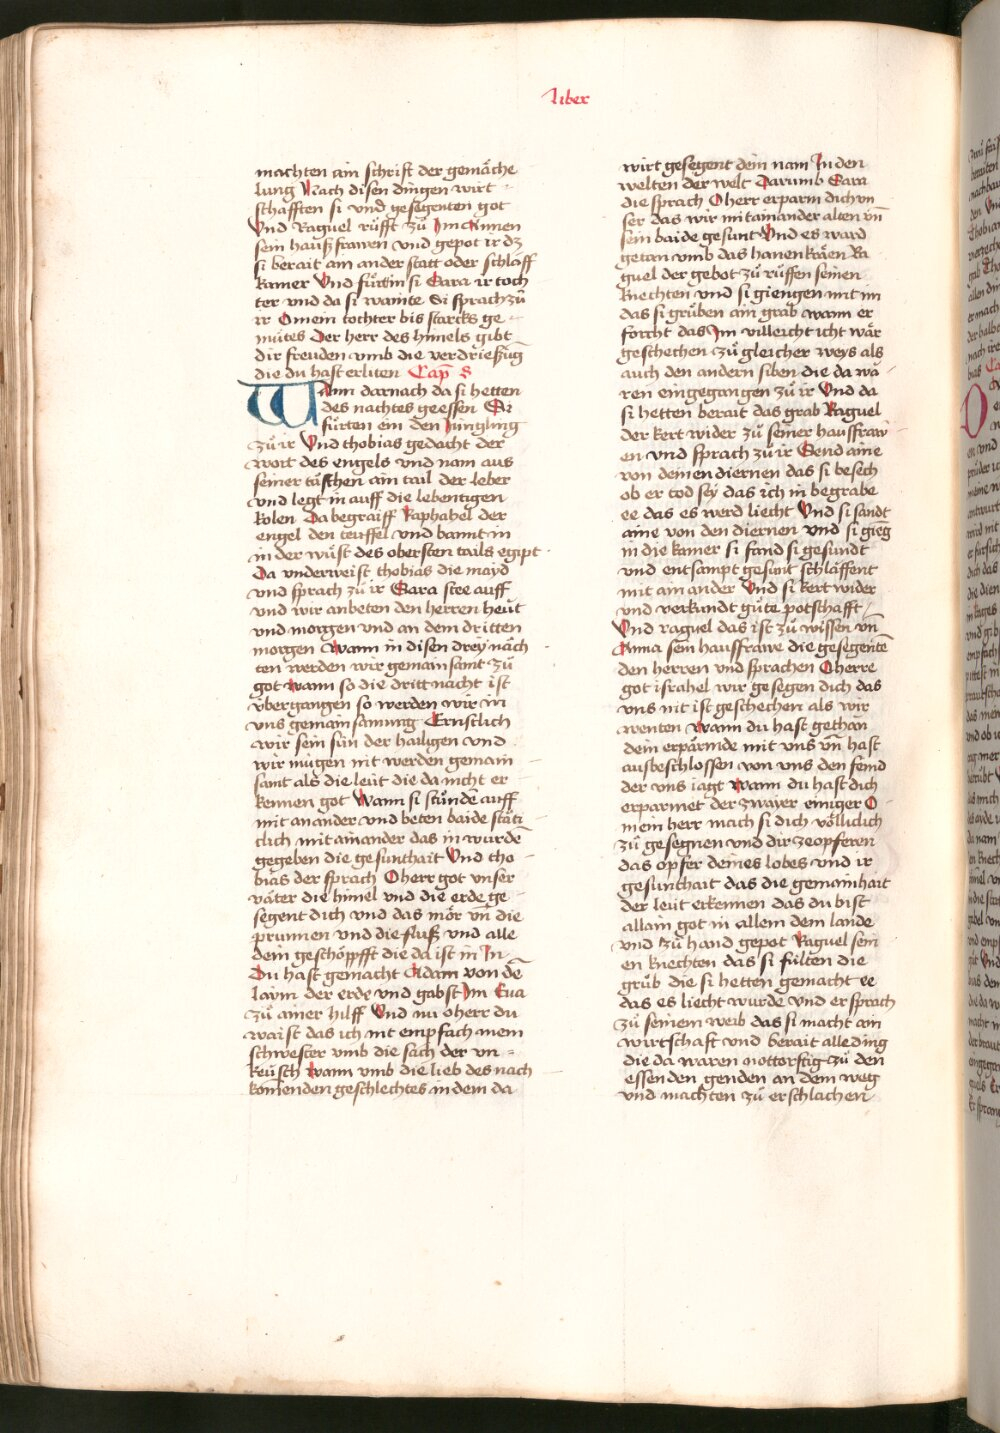 Liber
machten ain schrift der gemäche
lung Nach disen dingen wirt
schafften si vnd gesegenten got
Vnd Raguel rüfft zů Im Annen
sein hausz frawen vnd gepot ir dz
si berait ain ander statt oder schlaff
kamer Vnd fürt ein si Sara ir toch
ter vnd da si wainte Si sprach zů
ir O mein tochter bis starcks ge
mütes Der herr des himels gibt
dir freuden vmb die verdrieszug̅
die du hast erliten Cap̅ 8
Wann darnach da si hetten
des nachtes geessen Si
fürten ein den Jüngling
zů ir Vnd thobias gedacht der
wort des engels vnd nam aus
seiner täschen ain tail der leber
vnd legt in auff die lebentigen
kolen Da begraiff Raphahel der
engel den teuffel vnd bannt in
in der wüst des obersten tails egipt
Da vnderweist thobias die mayd
vnd sprach zů ir Sara stee auff
vnd wir anbeten den herren heüt
vnd morgen vnd an dem dritten
morgen wann in disen drey näch
ten werden wir gemainsamt zů
got wann so die dritt nacht ist
übergangen so werden wir in
vns gemainsamung Ernstlich
wir sein sün der hailigen vnd
wir mügen nit werden gemain
samt als die leüt die da nicht er
kennen got Wann si stůnde̅ auff
mit anander vnd beten baide stäti
clich mit ainander das in wurde̅
gegeben die gesunthait Vnd tho
bias der sprach O herr got vnser
väter die himel vnd die erde ge
segent dich vnd das mör vn̅ die
prunnen vnd die flusz vnd alle
dein geschöppfft die da ist in In
Du hast gemacht Adam von de̅
laym der erde vnd gabst Im Eua
zů ainer hilff Vnd nu o herr du
waist das ich nit empfach mein
schwester vmb die sach der vn
keüsch wann vmb die lieb des nach
komenden geschlechtes in dem da
wirt gesegent dein nam In den
welten der welt Darumb Sara
die sprach O herr erparm dich vn
ser das wir mit ainander alten vn̅
sein baide gesunt Vnd es ward
getan vmb das hanenkräen Ra
guel der gebot zů rüffen seinen
knechten vnd si giengen mit im
das si grůben ain grab wann er
forcht das Im villeicht icht wär
geschechen zů gleicher weys als
auch den andern siben die da wa
ren eingegangen zů ir Vnd da
si hetten berait das grab Raguel
der kert wider zů seiner hausfraw
en vnd sprach zů ir Send aine
von deinen diernen das si besech
ob er tod sey das ich in begrabe
ee das es werd liecht Vnd si sandt
aine von den diernen vnd si gieg̅
in die kamer si fand si gesundt
vnd entsampt gesunt schläffent
mit ain ander Vnd si kert wider
vnd verkundt gůte potschafft
Vnd raguel das ist zů wissen vn̅
Anna sein hausfrawe die gesegente̅
den herren vnd sprachen O herre
got israhel wir gesegen dich das
vns nit ist geschechen als wir
wenten wann du hast gethan
dein erpärmde mit vns vn̅ hast
ausbeschlossen von vns den feind
der vns iagt wann du hast dich
erparmet der zwayer einiger O
mein herr mach si dich völliclich
zů gesegnen vnd dir ze opferen
das opfer deines lobes vnd ir
gesunthait das die gemainhait
der leüt erkennen das du bist
allain got in allem dem lande
vnd zů hand gepot Raguel sein
en knechten das si fülten die
grůb die si hetten gemacht ee
das es liecht wurde vnd er sprach
zů seinem weib das si macht ain
wirtschaft vnd berait alle ding
die da waren nottorftig zů den
essenden genden an dem weg
vnd machten zů erschlachen